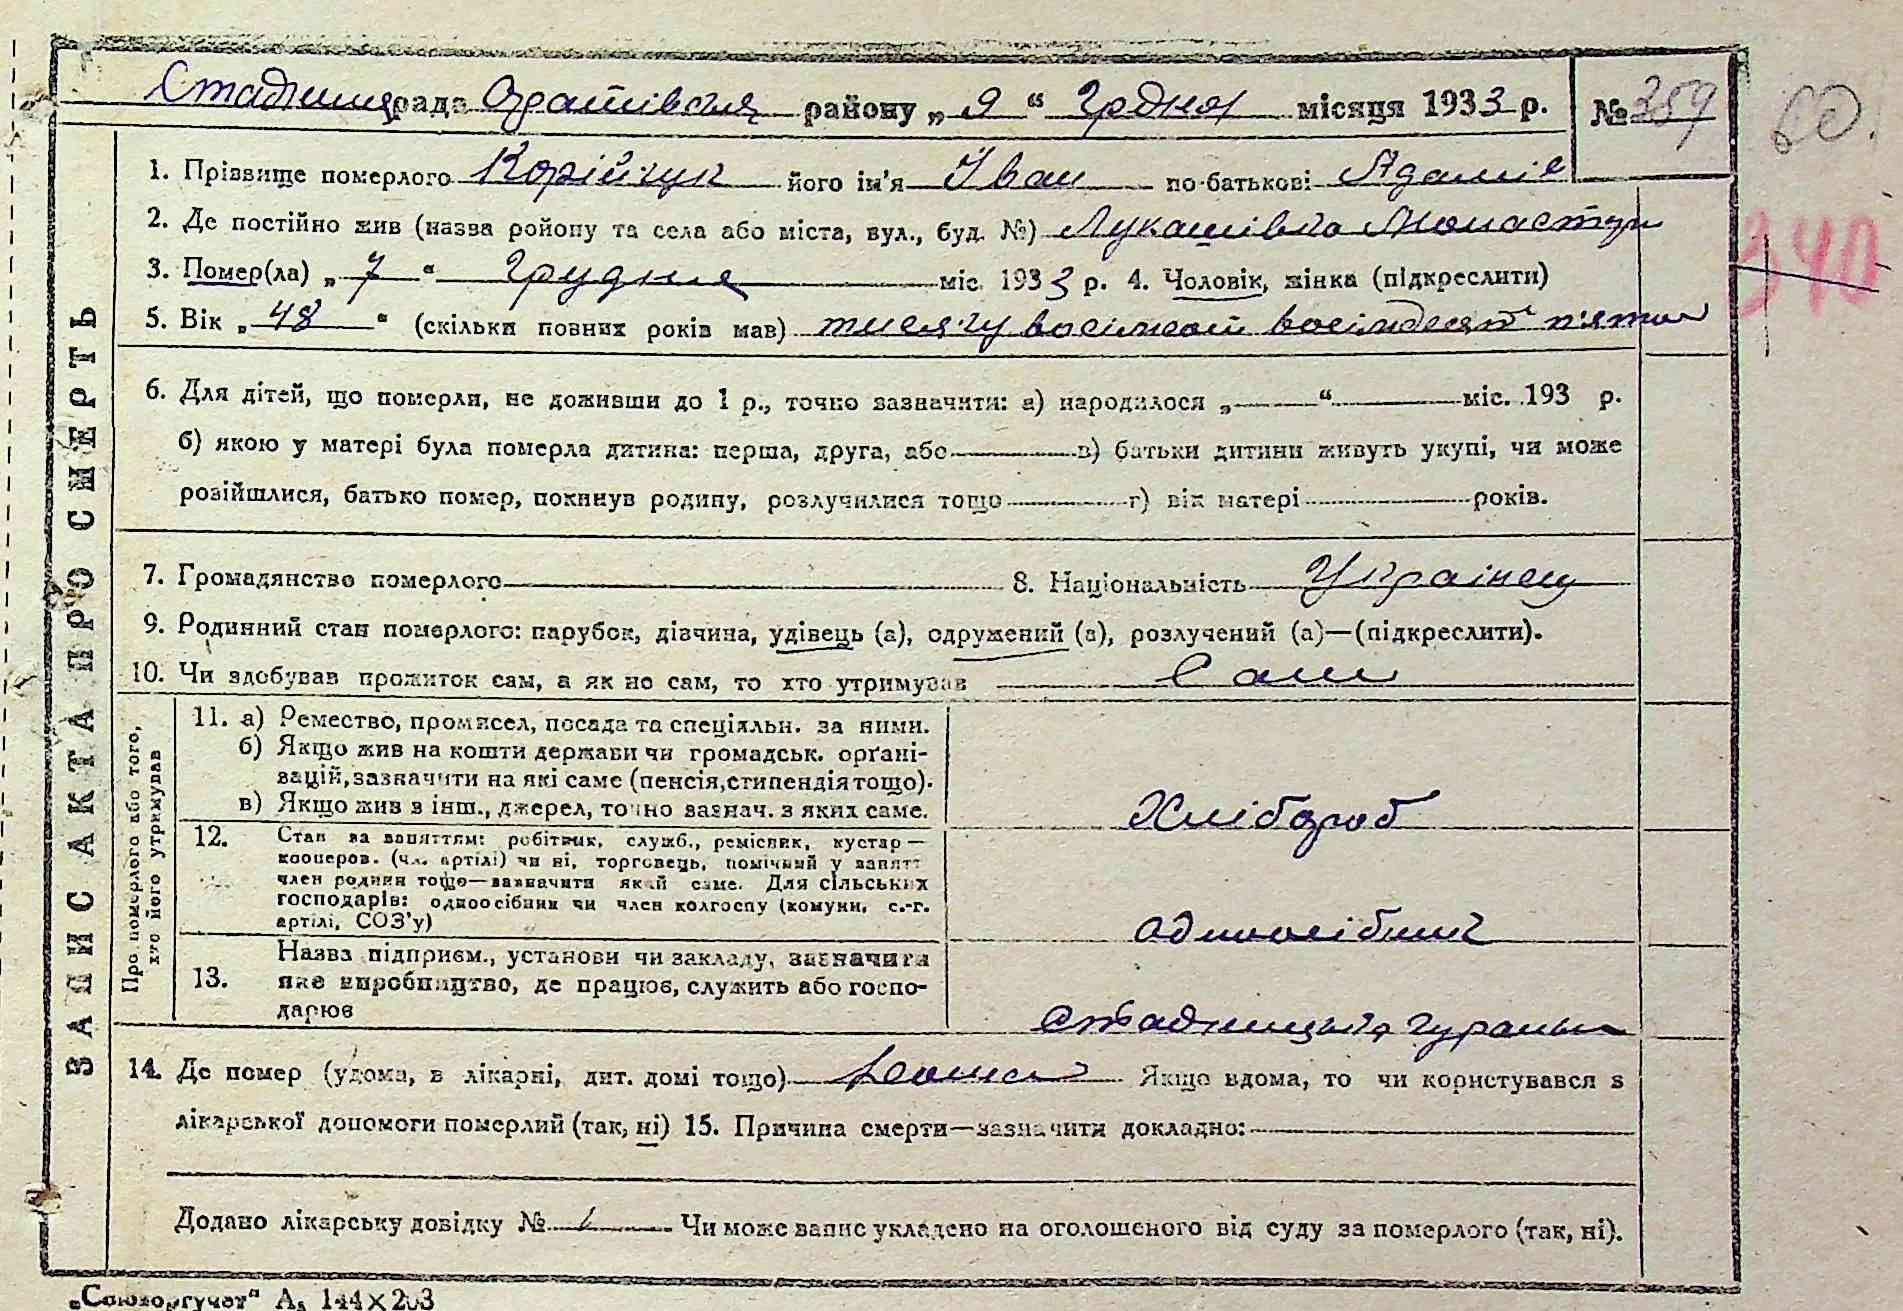 Стадниця рада Оратівськ району „ 9 “ Грдня місяця 1933 р. № 359 60.
1. Прізвище померлого Корійчук його ім'я Іван по-батькові Адамів
2. Де постійно жив (назва ройону та села або міста, вул., буд. №) Лукашівка Монастир
340
3. Помер(ла) „ 7 “ Грудня міс. 1933 р. 4. Чоловік, жінка (підкреслити)
5. Вік „ 48 “ (скільки повних років мав) тисячу вісімсот вісімдесят п'ятом
ЗАПИС АКТА ПРО СМЕРТЬ
6. Для дітей, що померли, не доживши до 1 р., точно зазначити: а) народилося „ “ міс. 193 р.
б) якою у матері була померла дитина: перша, друга, або в) батьки дитини живуть укупі, чи може
розійшлися, батько помер, покинув родину, розлучилися тощо г) вік матері років.
7. Громадянство померлого 8. Національність Українец
9. Родинний стан померлого: парубок, дівчина, удівець (а), одружений (а), розлучений (а)—(підкреслити).
10. Чи здобував прожиток сам, а як не сам, то хто утримував Сам
Про померлого або того,
хто його утримував
11. а) Ремество, промисел, посада та спеціяльн. за ними.
б) Якщо жив на кошти держави чи громадськ. орґані-
зацій, зазначити на які саме (пенсія, стипендія тощо).
в) Якщо жив з інш., джерел, точно зазнач. з яких саме. Хлібороб
12. Стан за заняттям: робітник, служб., ремісник, кустар—
кооперов. (чл. артілі) чи ні, торговець, помічний у занятт
член родини тощо—зазначити який саме. Для сільських
господарів: одноосібник чи член колгоспу (комуни, с.-г.
артілі, СОЗ'у) одноосібник
13. Назва підприєм., установи чи закладу, зазначити
яке виробництво, де працює, служить або госпо-
дарює Стадницька
14. Де помер (удома, в лікарні, дит. домі тощо) Якщо вдома, то чи користувався з
лікарської допомоги померлий (так, ні) 15. Причина смерти—зазначити докладно:
Додано лікарську довідку № Чи може запис укладено на оголошеного від суду за померлого (так, ні).
„Союзоргучет“ А, 144×203